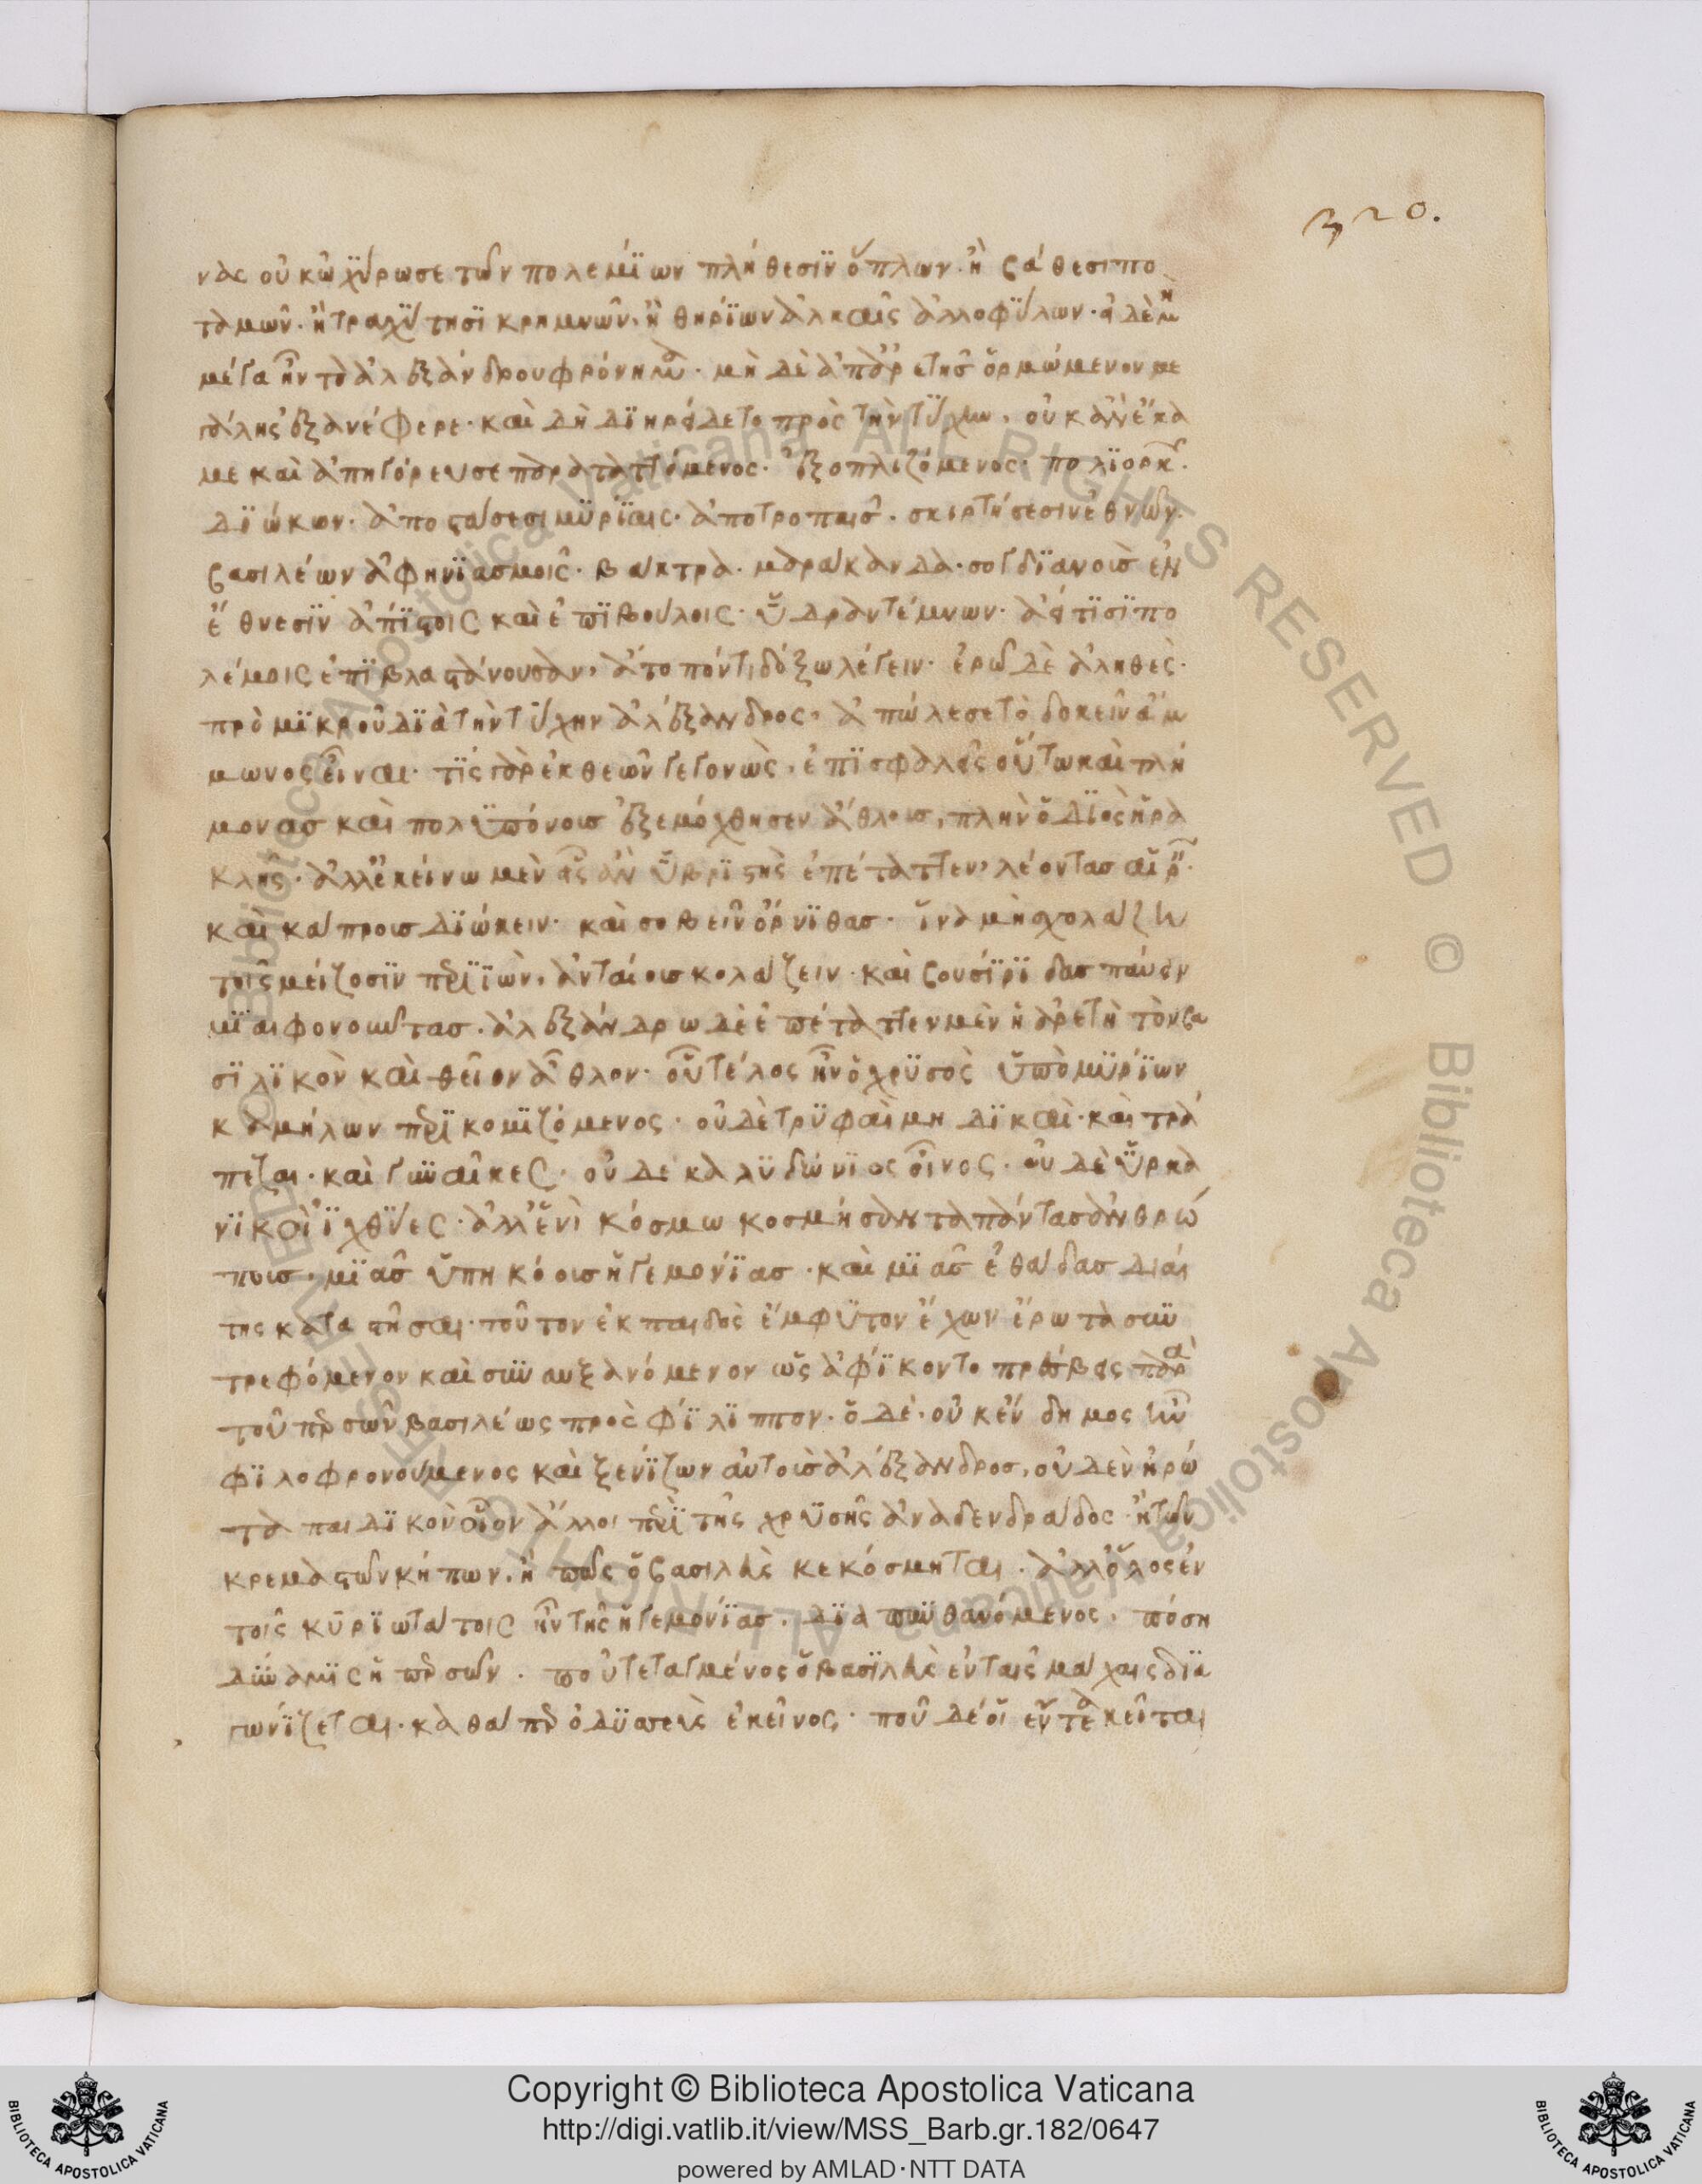 320.
νας οὐκ ὠχύρωσε τῶν πολεμΐων πλήθεσϊν ὅπλων· ἢ βάθεσι πο
ταμῶν· ἢ τραχύτησϊ κρημνῶν, ἢ θηρΐων ἀλκαῖς ἀλλοφύλων· εἰ δὲ μὴ
μέγα ἦν τὸ ἀλεξάνδρου φρόνημα· μὴ δὲ ἀπ' ἀρετῆς ὁρμώμενον με
γάλης ἐξανέφερε· καὶ δὴ διηρείδετο πρὸς τὴν τύχην, οὐκ ἂν ἔκα
με καὶ ἀπηγόρευσε παραταττόμενος· ἐξοπλιζόμενος· πολϊορκῶν·
διώκων· ἀποστάσεσι μυρίαις· ἀποτροπαῖς· σκιρτήσεσιν ἐθνῶν·
βασιλέων ἀφηνϊασμοῖς· βάκτρα· μαράκανδα· σογδϊανοὺς ἐν
ἔθνεσϊν ἀπίστοις καὶ ἐπϊβούλοις· ὕδραν τέμνων· ἀεί τϊσϊ πο
λέμοις ἐπϊβλαστάνουσαν, ἄτοπόν τι δόξω λέγειν· ἐρῶ δὲ ἀληθὲς·
πρὸ μϊκροῦ διὰ τὴν τύχην ἀλέξανδρος, ἀπώλεσε τὸ δοκεῖν ἄμ
μωνος εἶναι· τίς γὰρ ἐκ θεῶν γεγονὼς, ἐπϊσφαλεῖς οὕτω καὶ τλή
μονας καὶ πολυπόνους ἐξεμόχθησεν ἄθλους, πλὴν ὁ διὸς ἡρα
κλῆς· ἀλλ' ἐκείνω μὲν εἷς ἀνὴρ ὑβρϊστὴς ἐπέταττεν, λέοντας αἱρεῖν·
καὶ κάπρους διώκειν· καὶ σοβεῖν ὄρνϊθας· ἵνα μὴ σχολάζη
τοῖς μείζοσϊν περιϊὼν, ἀνταίους κολάζειν· καὶ βουσίρϊδας παύειν
μϊαιφονοῦντας· ἀλεξάνδρω δὲ ἐπέταττεν μὲν ἡ ἀρετὴ τὸν βα
σϊλϊκὸν καὶ θεῖον ἆθλον· οὗ τέλος ἦν ὁ χρυσὸς ὑπὸ μυρίων
καμήλων περϊκομϊζόμενος· οὐδὲ τρυφαὶ μηδϊκαὶ· καὶ τρά
πεζαι· καὶ γυναῖκες· οὐδὲ καλυδώνϊος οἶνος· οὐδὲ ὑρκα
νϊκοὶ ἰχθύες· ἀλλ' ἑνὶ κόσμω κοσμήσαντα πάντας ἀνθρώ
πους· μϊᾶς ὑπηκόους ἡγεμονίας· καὶ μϊᾶς ἐθάδας διαί
της καταστῆσαι· τοῦτον ἐκ παιδὸς ἔμφυτον ἔχων ἔρωτα συν
τρεφόμενον καὶ συναυξανόμενον ὡς ἀφίκοντο πρέσβεις παρὰ
τοῦ περσῶν βασιλέως πρὸς φίλϊππον· ὁ δὲ· οὐκ ἔνδημος ἦν
φϊλοφρονούμενος καὶ ξενίζων αὐτοὺς ἀλέξανδρος, οὐδὲν ἠρώ
τα παιδϊκὸν οἷον ἄλλοι περὶ τῆς χρυσῆς ἀναδενδράδος· ἢ τῶν
κρεμαστῶν κήπων, ἢ πῶς ὁ βασιλεὺς κεκόσμηται· ἀλλ' ὅλος ἐν
τοῖς κυρϊωτάτοις ἦν τῆς ἡγεμονίας· διαπυνθανόμενος, πόση
δύναμϊς ἡ περσῶν· ποῦ τεταγμένος ὁ βασϊλεὺς ἐν ταῖς μάχαις δϊα
γωνίζεται· καθάπερ ὀδυσσεὺς ἐκεῖνος· ποῦ δέ οἱ ἔντεα κεῖται